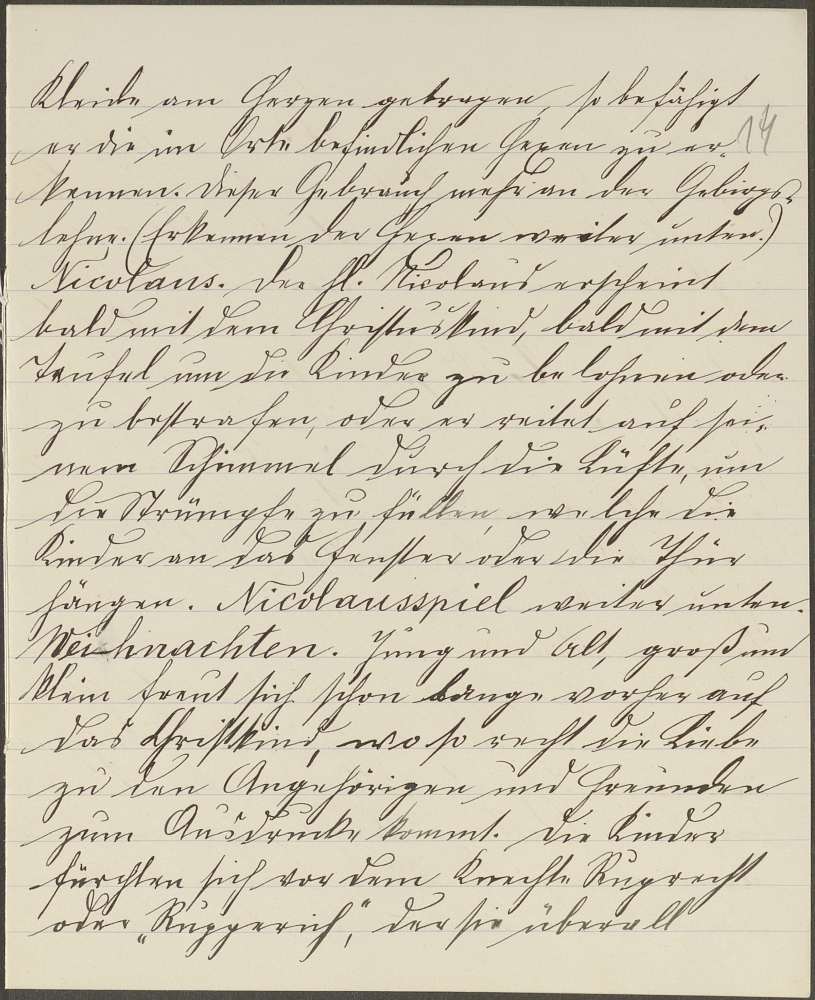 Kleide am Herzen getragen, so befähigt
er die im Orte befindlichen Hexen zu er-
14
kennen. Dieser Gebrauch mehr an der Gebirgs-
lehne. (Erkennen der Hexen weiter unten.)
Nicolaus. Der hl. Nicolaus erscheint
bald mit dem Christuskind, bald mit dem
Teufel um die Kinder zu belohnen oder
zu bestrafen, oder er reitet auf sei-
nem Schimmel durch die Lüfte, um
die Strümpfe zu füllen, welche die
Kinder an das Fenster oder die Thür
hängen. Nicolausspiel weiter unten.
Weihnachten. Jung und Alt, groß und
klein freut sich schon lange vorher auf
das Christkind, wo so recht die Liebe
zu den Angehörigen und Freunden
zum Ausdrucke kommt. Die Kinder
fürchten sich vor dem Knechte Ruprecht
oder „Ruppgerich", der sie überall